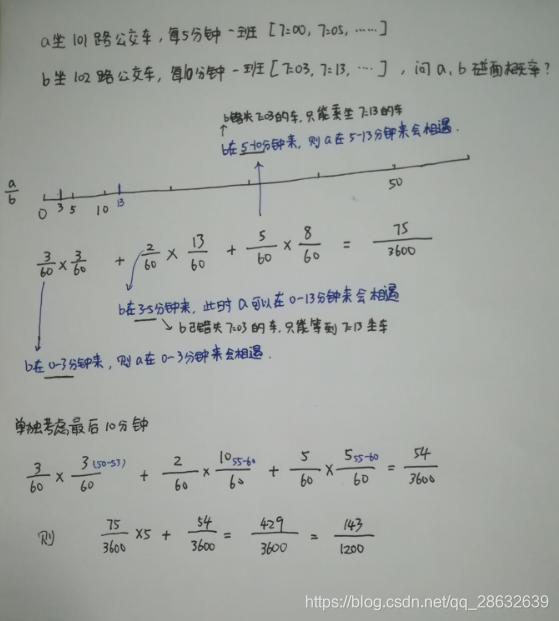 a坐 101 路公交车，每5分钟一班 [7:00, 7:05, ……]
b坐 102 路公交车，每10分钟一班 [7:03, 7:13, …]，问 a, b 碰面概率？
b错失7:03的车，只能乘坐 7:13 的车
b在 5-10分钟来，则 a 在 5-13分钟来会相遇.
a/b
0 3 5 10 13 50
3/60 × 3/60 + 2/60 × 13/60 + 5/60 × 8/60 = 75/3600
b在 3-5分钟来，此时 a 可以在 0-13分钟来会相遇
b已错失 7:03 的车，只能等到 7:13 坐车
b在 0-3分钟来，则 a 在 0-3分钟来会相遇.
单独考虑最后 10 分钟
3/60 × 3(50-53)/60 + 2/60 × 10 55-60/60 + 5/60 × 5 55-60/60 = 54/3600
则 75/3600 ×5 + 54/3600 = 429/3600 = 143/1200
https://blog.csdn.net/qq_28632639